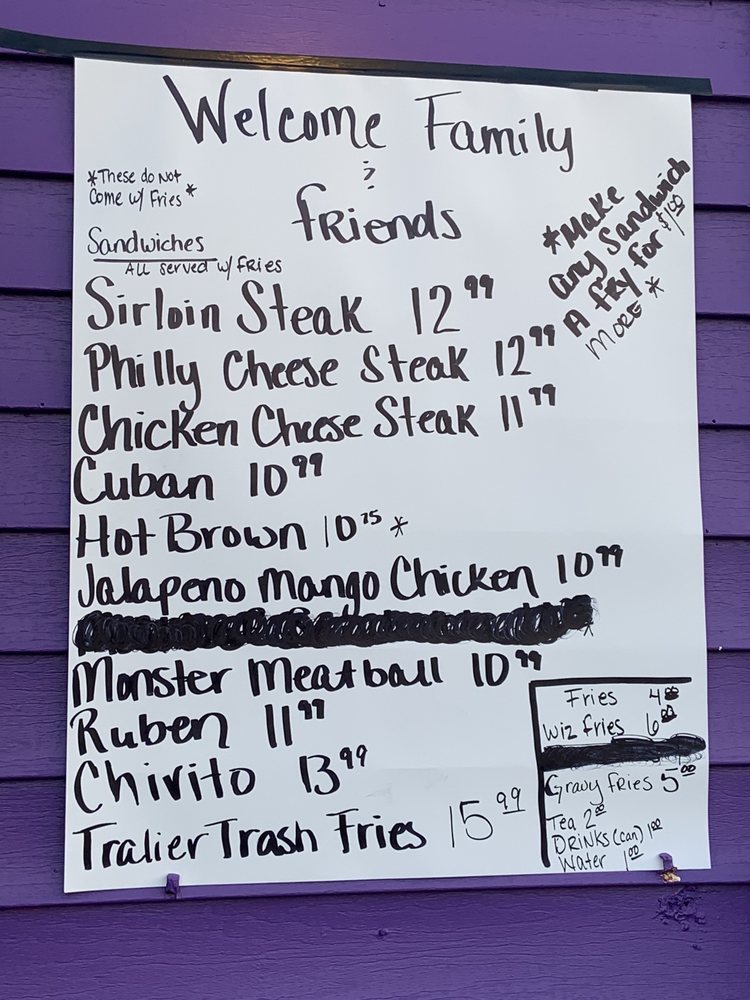 Welcome Family
&
fRiends
*These do Not
Come w/ Fries*
*Make
any Sandwich
A fRy for $1.00
MORE *
Sandwiches
All served w/ fRies
Sirloin Steak 12.99
Philly Cheese Steak 12.99
Chicken Cheese Steak 11.99
Cuban 10.99
Hot Brown 10.75 *
Jalapeno Mango Chicken 10.99
Monster Meatball 10.99
Ruben 11.99
Chivito 13.99
Tralier Trash Fries 15.99
Fries 4.00
Wiz fries 6.00
Gravy fries 5.00
Tea 2.00
DRiNKs (can) 1.00
Water 1.00